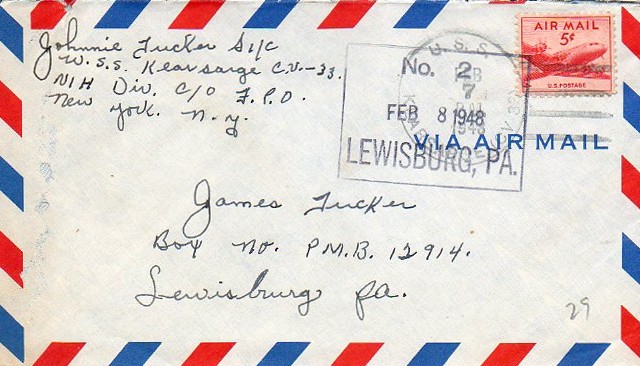 Johnnie Tucker S1/c
U.S.S. Kearsarge C.V.-33.
N/H Div. C/O F.P.O.
New York. N.Y.
AIR MAIL
5¢
U.S. POSTAGE
U.S.S.
FEB
7
1948
No. 2
FEB 8 1948
LEWISBURG, PA.
VIA AIR MAIL
James Tucker
Box No. P.M.B. 12914.
Lewisburg Pa.
29